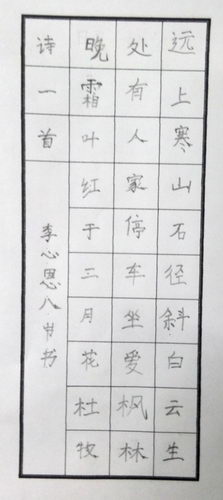 远上寒山石径斜白云生
处有人家停车坐爱枫林
晚霜叶红于三月花杜牧
诗一首 李心恩八书